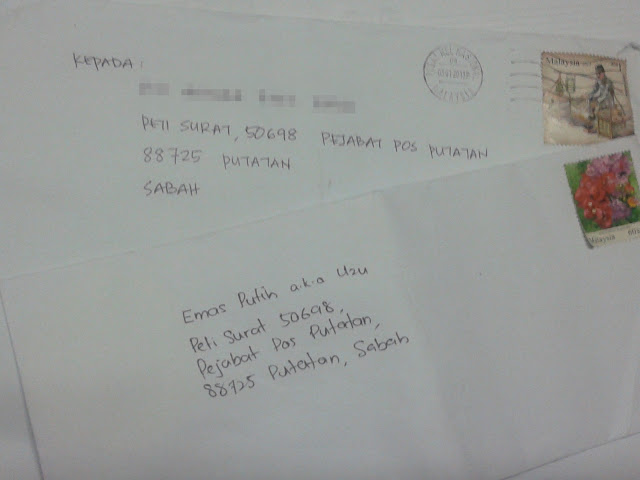 KEPADA :
PETI SURAT, 50698 PEJABAT POS PUTATAN
88725 PUTATAN
SABAH
Malaysia
Emas Putih a.k.a Uzu
Peti Surat 50698,
Pejabat Pos Putatan,
88725 Putatan, Sabah
Malaysia